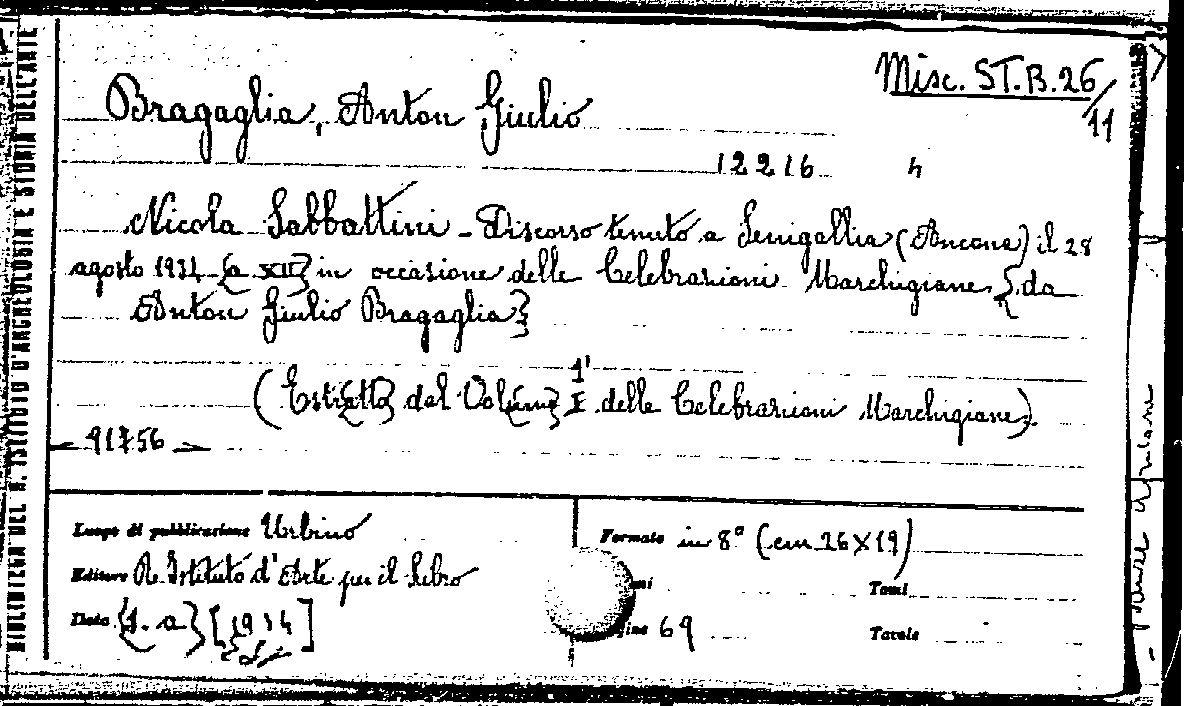 Misc. ST.B.26/11
Bragaglia, Anton Giulio
12216 h
Nicola Sabbattini - Discorso tenuto a Senigallia (Ancona) il 28
agosto 1934 {a XII} in occasione delle Celebrazioni Marchigiane {da
Anton Giulio Bragaglia}
(Estr{atto} dal Vol{ume} 1° delle Celebrazioni Marchigiane).
91756
Luogo di pubblicazione Urbino
Formato in 8° (cm 26X19)
Editore R. Istituto d'Arte per il Libro
Tomi
Data {s. a} [1934]
69
Tavole
BIBLIOTECA DEL R. ISTITUTO D'ARCHEOLOGIA E STORIA DELL'ARTE